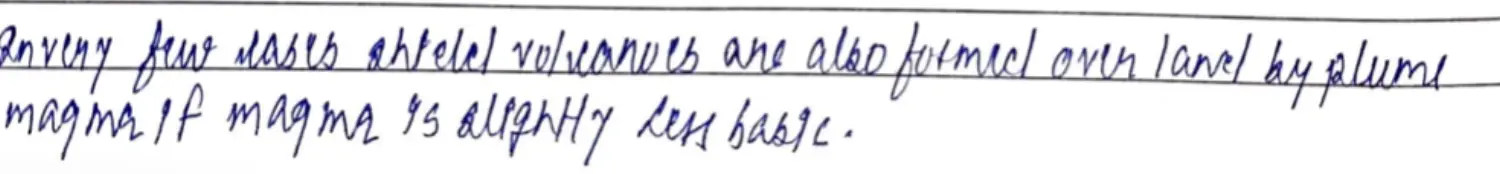 In very few cases shield volcanoes are also formed over land by plume
magma if magma is slightly less basic.